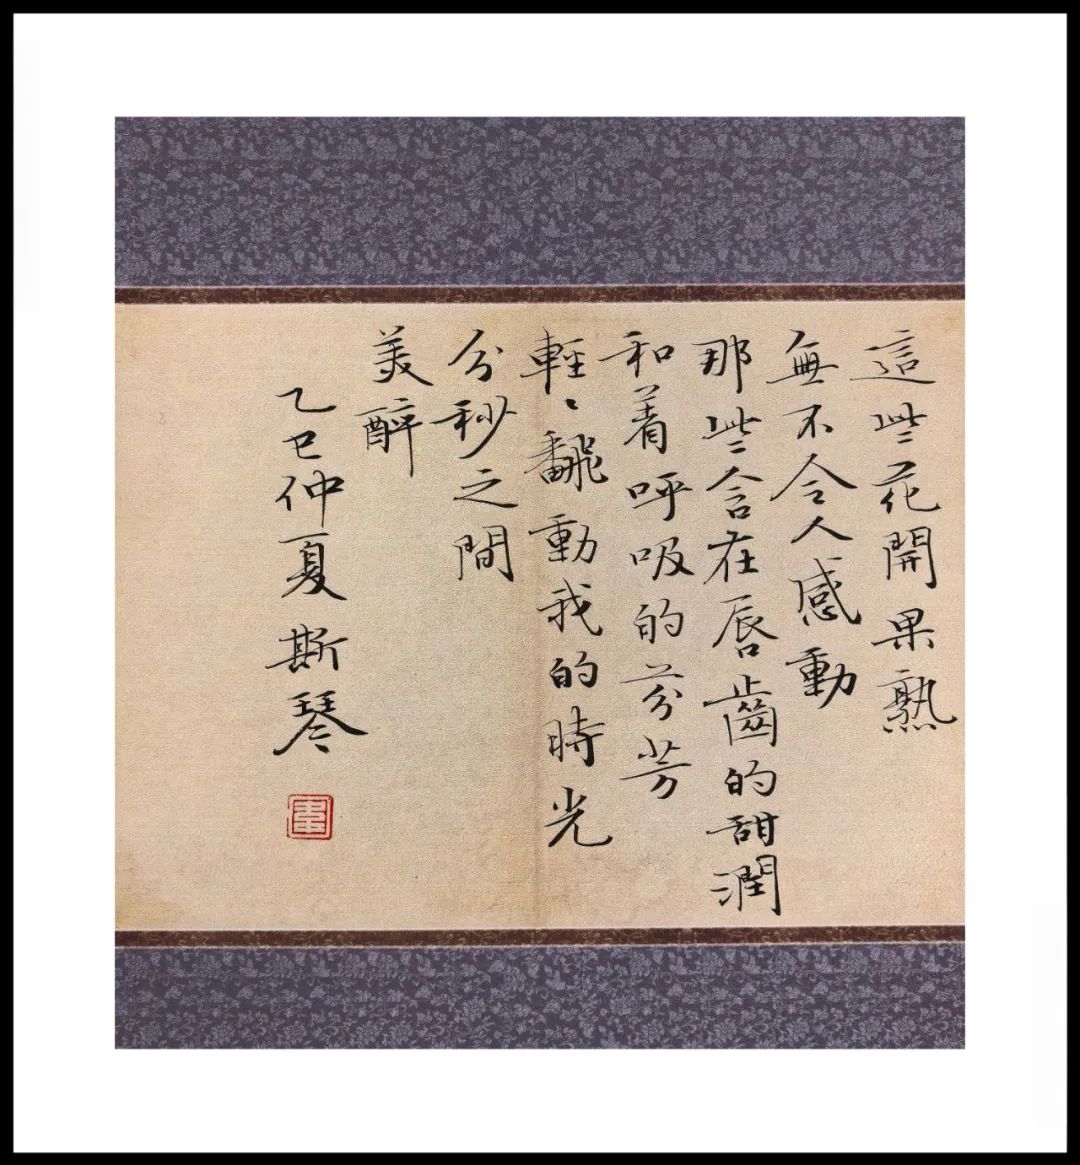 這些花開果熟
無不令人感動
那些含在唇齒的甜潤
和着呼吸的芬芳
輕〻翻動我的時光
分秒之間
美醉
乙巳仲夏 斯琴